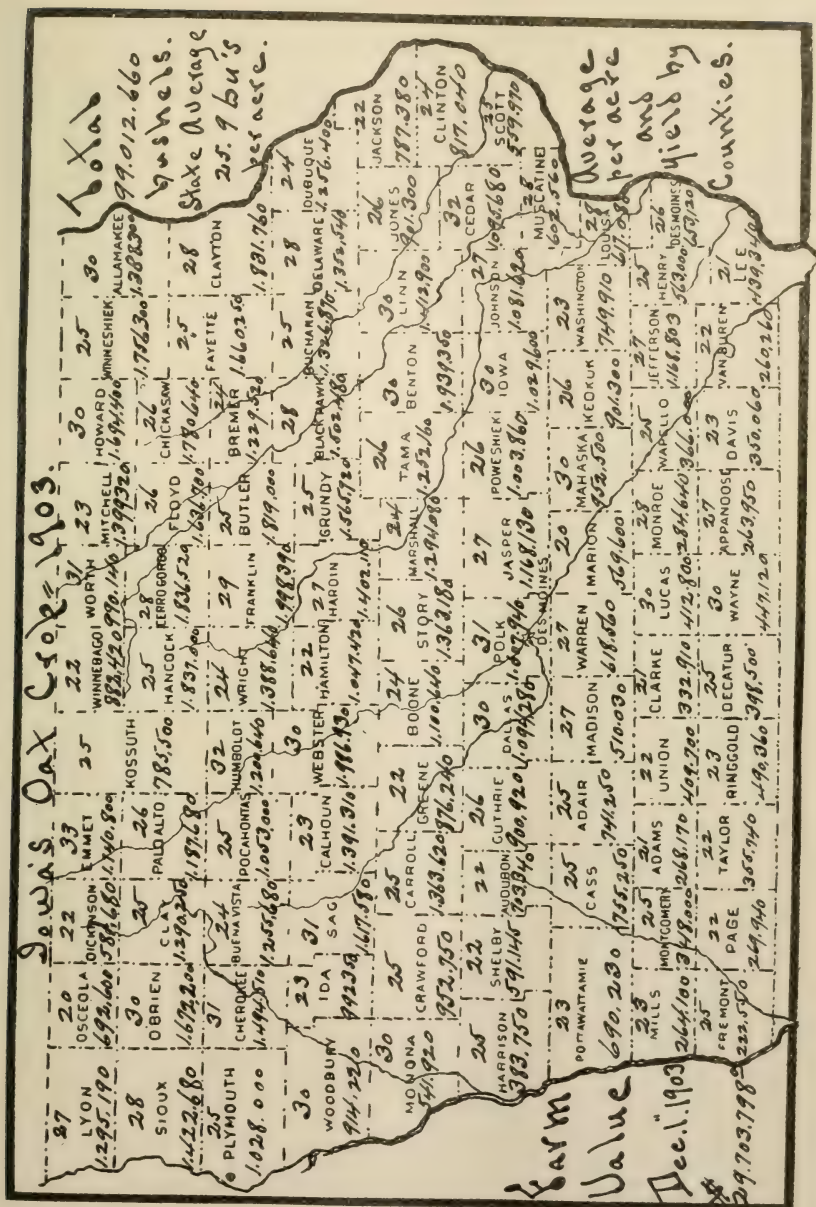 Iowa's Oax Crop 1903.
Total
99.012.660
bushels.
State Average
25.9 bu's
per acre.
27
LYON
1.295.190
20
OSCEOLA
692,600
22
DICKINSON
33
EMMET
1.140.800
25
KOSSUTH
785,500
22
WINNEBAGO
882,420
31
WORTH
990.140
23
MITCHELL
1.399320
30
HOWARD
1.694.400
25
WINNESHIEK
1.756.300
30
ALLAMAKEE
1.388.300
28
SIOUX
1.422.680
30
OBRIEN
1.672,200
25
CLAY
1.290,250
26
PALO ALTO
1,187.680
25
HANCOCK
1.837.000
28
CERRO GORDO
1.836.520
26
FLOYD
1.636.700
26
CHICKASAW
1.780.640
25
FAYETTE
1.660.250
28
CLAYTON
1.831.760
25
PLYMOUTH
1.028.000
31
CHEROKEE
1.494.510
24
BUENA VISTA
1.255,680
25
POCAHONTAS
1.053.000
32
HUMBOLDT
1.204.640
24
WRIGHT
1.388.640
29
FRANKLIN
1.998.390
25
BUTLER
1.819.000
24
BREMER
1.229.520
30
WOODBURY
914.220
23
IDA
992350
31
SAC
1.617.580
23
CALHOUN
1,391.310
30
WEBSTER
1.986.930
22
HAMILTON
1.047.420
27
HARDIN
1.402.110
25
GRUNDY
1.565.720
28
BLACKHAWK
1.502.480
25
BUCHANAN
1.326.870
28
DELAWARE
1.352.540
24
DUBUQUE
1.256.400
30
MONONA
541.920
25
CRAWFORD
952.750
25
CARROLL
1.363.620
22
GREENE
976.240
24
BOONE
1,100.640
26
STORY
1.363.180
24
MARSHALL
1.294.080
26
TAMA
1.252.160
30
BENTON
1.939.350
30
LINN
1.412.900
26
JONES
901.300
22
JACKSON
787.380
24
CLINTON
817.040
25
HARRISON
383.750
22
SHELBY
591.145
22
AUDUBON
703,340
26
GUTHRIE
900,920
30
DALLAS
1.094.280
31
POLK
DES MOINES
27
JASPER
1.168.130
26
POWESHIEK
1.003.860
30
IOWA
1,029.600
27
JOHNSON
1.081.620
32
CEDAR
1.095.680
25
SCOTT
559.970
28
MUSCATINE
602.560
23
POTTAWATTAMIE
690.230
25
CASS
755.250
25
ADAIR
741.250
27
MADISON
510.030
27
WARREN
618.560
20
MARION
569.600
30
MAHASKA
952,500
26
KEOKUK
901.300
23
WASHINGTON
749.910
28
LOUISA
617.080
23
MILLS
264.100
25
MONTGOMERY
348.000
21
ADAMS
268.170
22
UNION
409.200
21
CLARKE
332.910
30
LUCAS
412.800
28
MONROE
284.640
25
WAPELLO
366.000
27
JEFFERSON
1.168.803
25
HENRY
563.000
26
DESMOINES
652.120
25
FREMONT
222,550
22
PAGE
269.940
22
TAYLOR
355.740
23
RINGGOLD
490,360
25
DECATUR
398.500
30
WAYNE
447.120
27
APPANOOSE
263,950
23
DAVIS
350.060
22
VAN BUREN
260,260
21
LEE
Farm
Value
Dec. 1." 1903
Average
per acre
and
yield by
Counties.